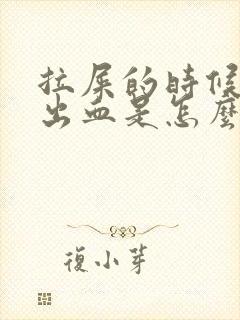 拉屎的時候
出血是怎麼
復小芽